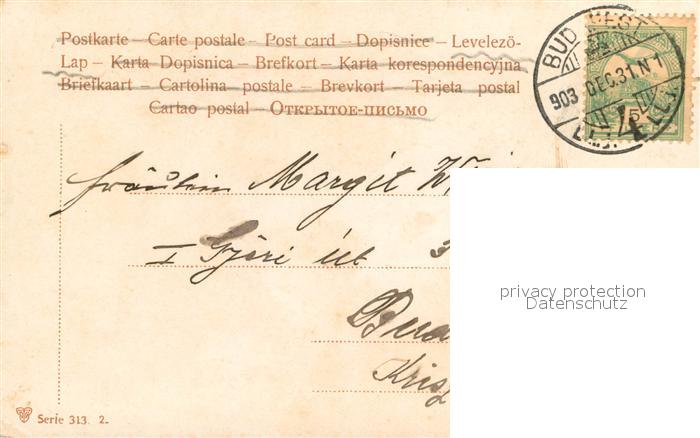 Postkarte – Carte postale – Post card – Dopisnice – Levelező-
Lap – Karta Dopisnica – Brefkort – Karta korespondencyjna
Briefkaart – Cartolina postale – Brevkort – Tarjeta postal
Cartao postal – Открытое-письмо
BUDAPEST
903 DEC. 31. N 1
4
5
Fräulein Margit
I Győri út 3
Bud
Krisz
privacy protection
Datenschutz
Serie 313. 2.